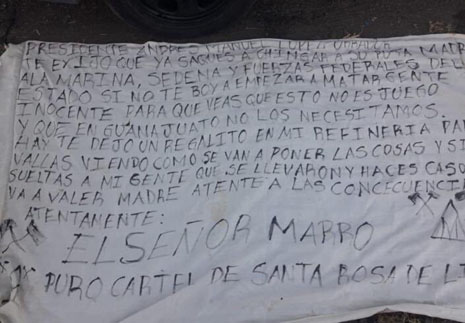 PRESIDENTE ANDRES MANUEL LOPEZ OBRADOR
TE EXIJO QUE YA SAQUES A CHINGAR A SU PUTA MADRE
ALA MARINA, SEDENA Y FUERZAS FEDERALES DEL
ESTADO SI NO TE BOY A EMPEZAR A MATAR GENTE
INOCENTE PARA QUE VEAS QUE ESTO NO ES JUEGO
Y QUE EN GUANAJUATO NO LOS NECESITAMOS.
HAY TE DEJO UN REGALITO EN MI REFINERIA PA
VALLAS VIENDO COMO SE VAN A PONER LAS COSAS Y SI
SUELTAS A MI GENTE QUE SE LLEVARON Y HACES CASO
VA A VALER MADRE ATENTE A LAS CONCECUENCI
ATENTANENTE:
EL SEÑOR MARRO
PURO CARTEL DE SANTA ROSA DE LI